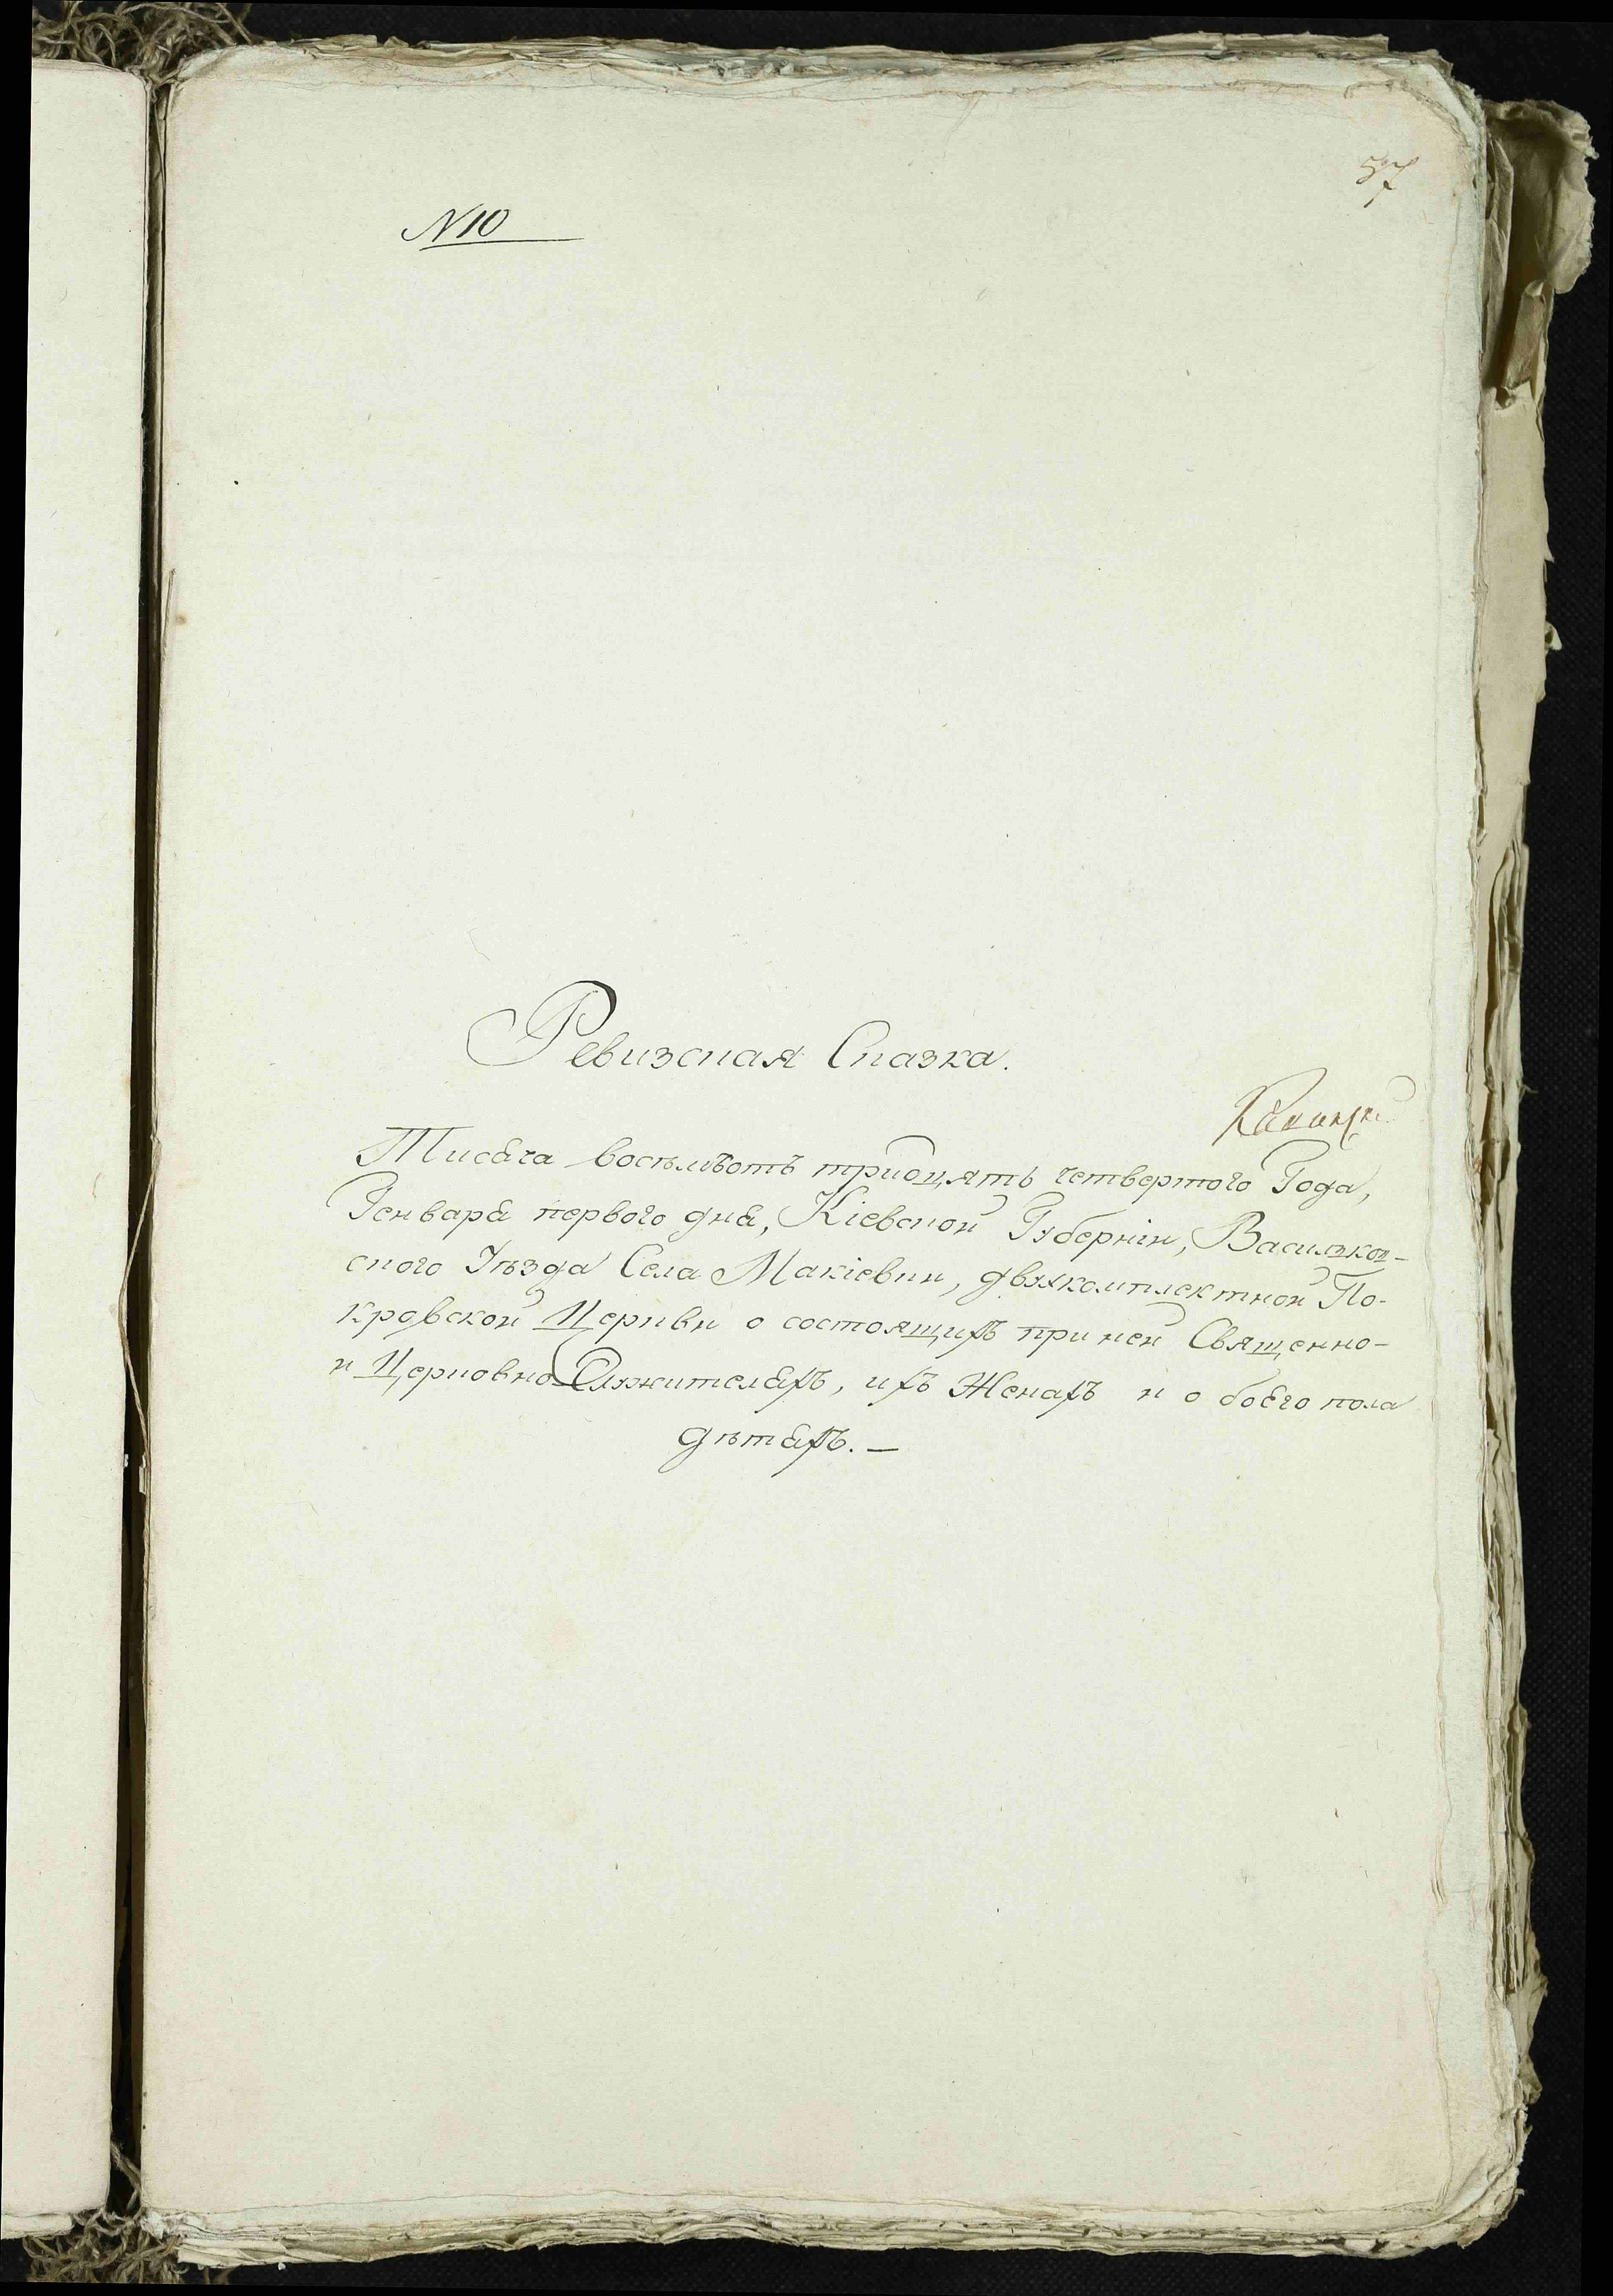 57
N 10
Ревизская Сказка.
Тисяча восѣмъсотъ тридцять четвертого Года,
Генваря первого дня, Кіевской Губерніи, Василков-
ского Уѣзда Села Макіевки, двухкомплектной По-
кровской Церкви о состоящихъ при ней Священно-
и Церковно Служителяхъ, ихъ Женахъ и обоего пола
дѣтяхъ. —